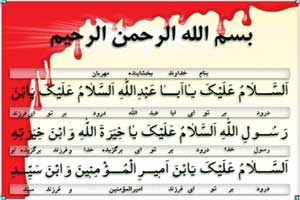 بسم الله الرحمن الرحیم
بنام خداوند بخشاینده مهربان
اَلسَّلامُ عَلَیْکَ یا اَبا عَبْدِاللَّهِ اَلسَّلامُ عَلَیْکَ یَابْنَ
درود بر تو ای ابا عبد الله درود بر تو ای فرزند
رَسُولِ اللَّهِ اَلسَّلامُ عَلَیْکَ یا خِیَرَةَ اللَّهِ وَابْنَ خِیَرَتِهِ
رسول خدا درود بر تو ای برگزیده خدا و فرزند برگزیده او
اَلسَّلامُ عَلَیْکَ یَابْنَ اَمیرِ الْمُؤْمِنینَ وَ ابْنَ سَیِّدِ
درود بر تو ای فرزند امیرالمؤمنین و فرزند سید